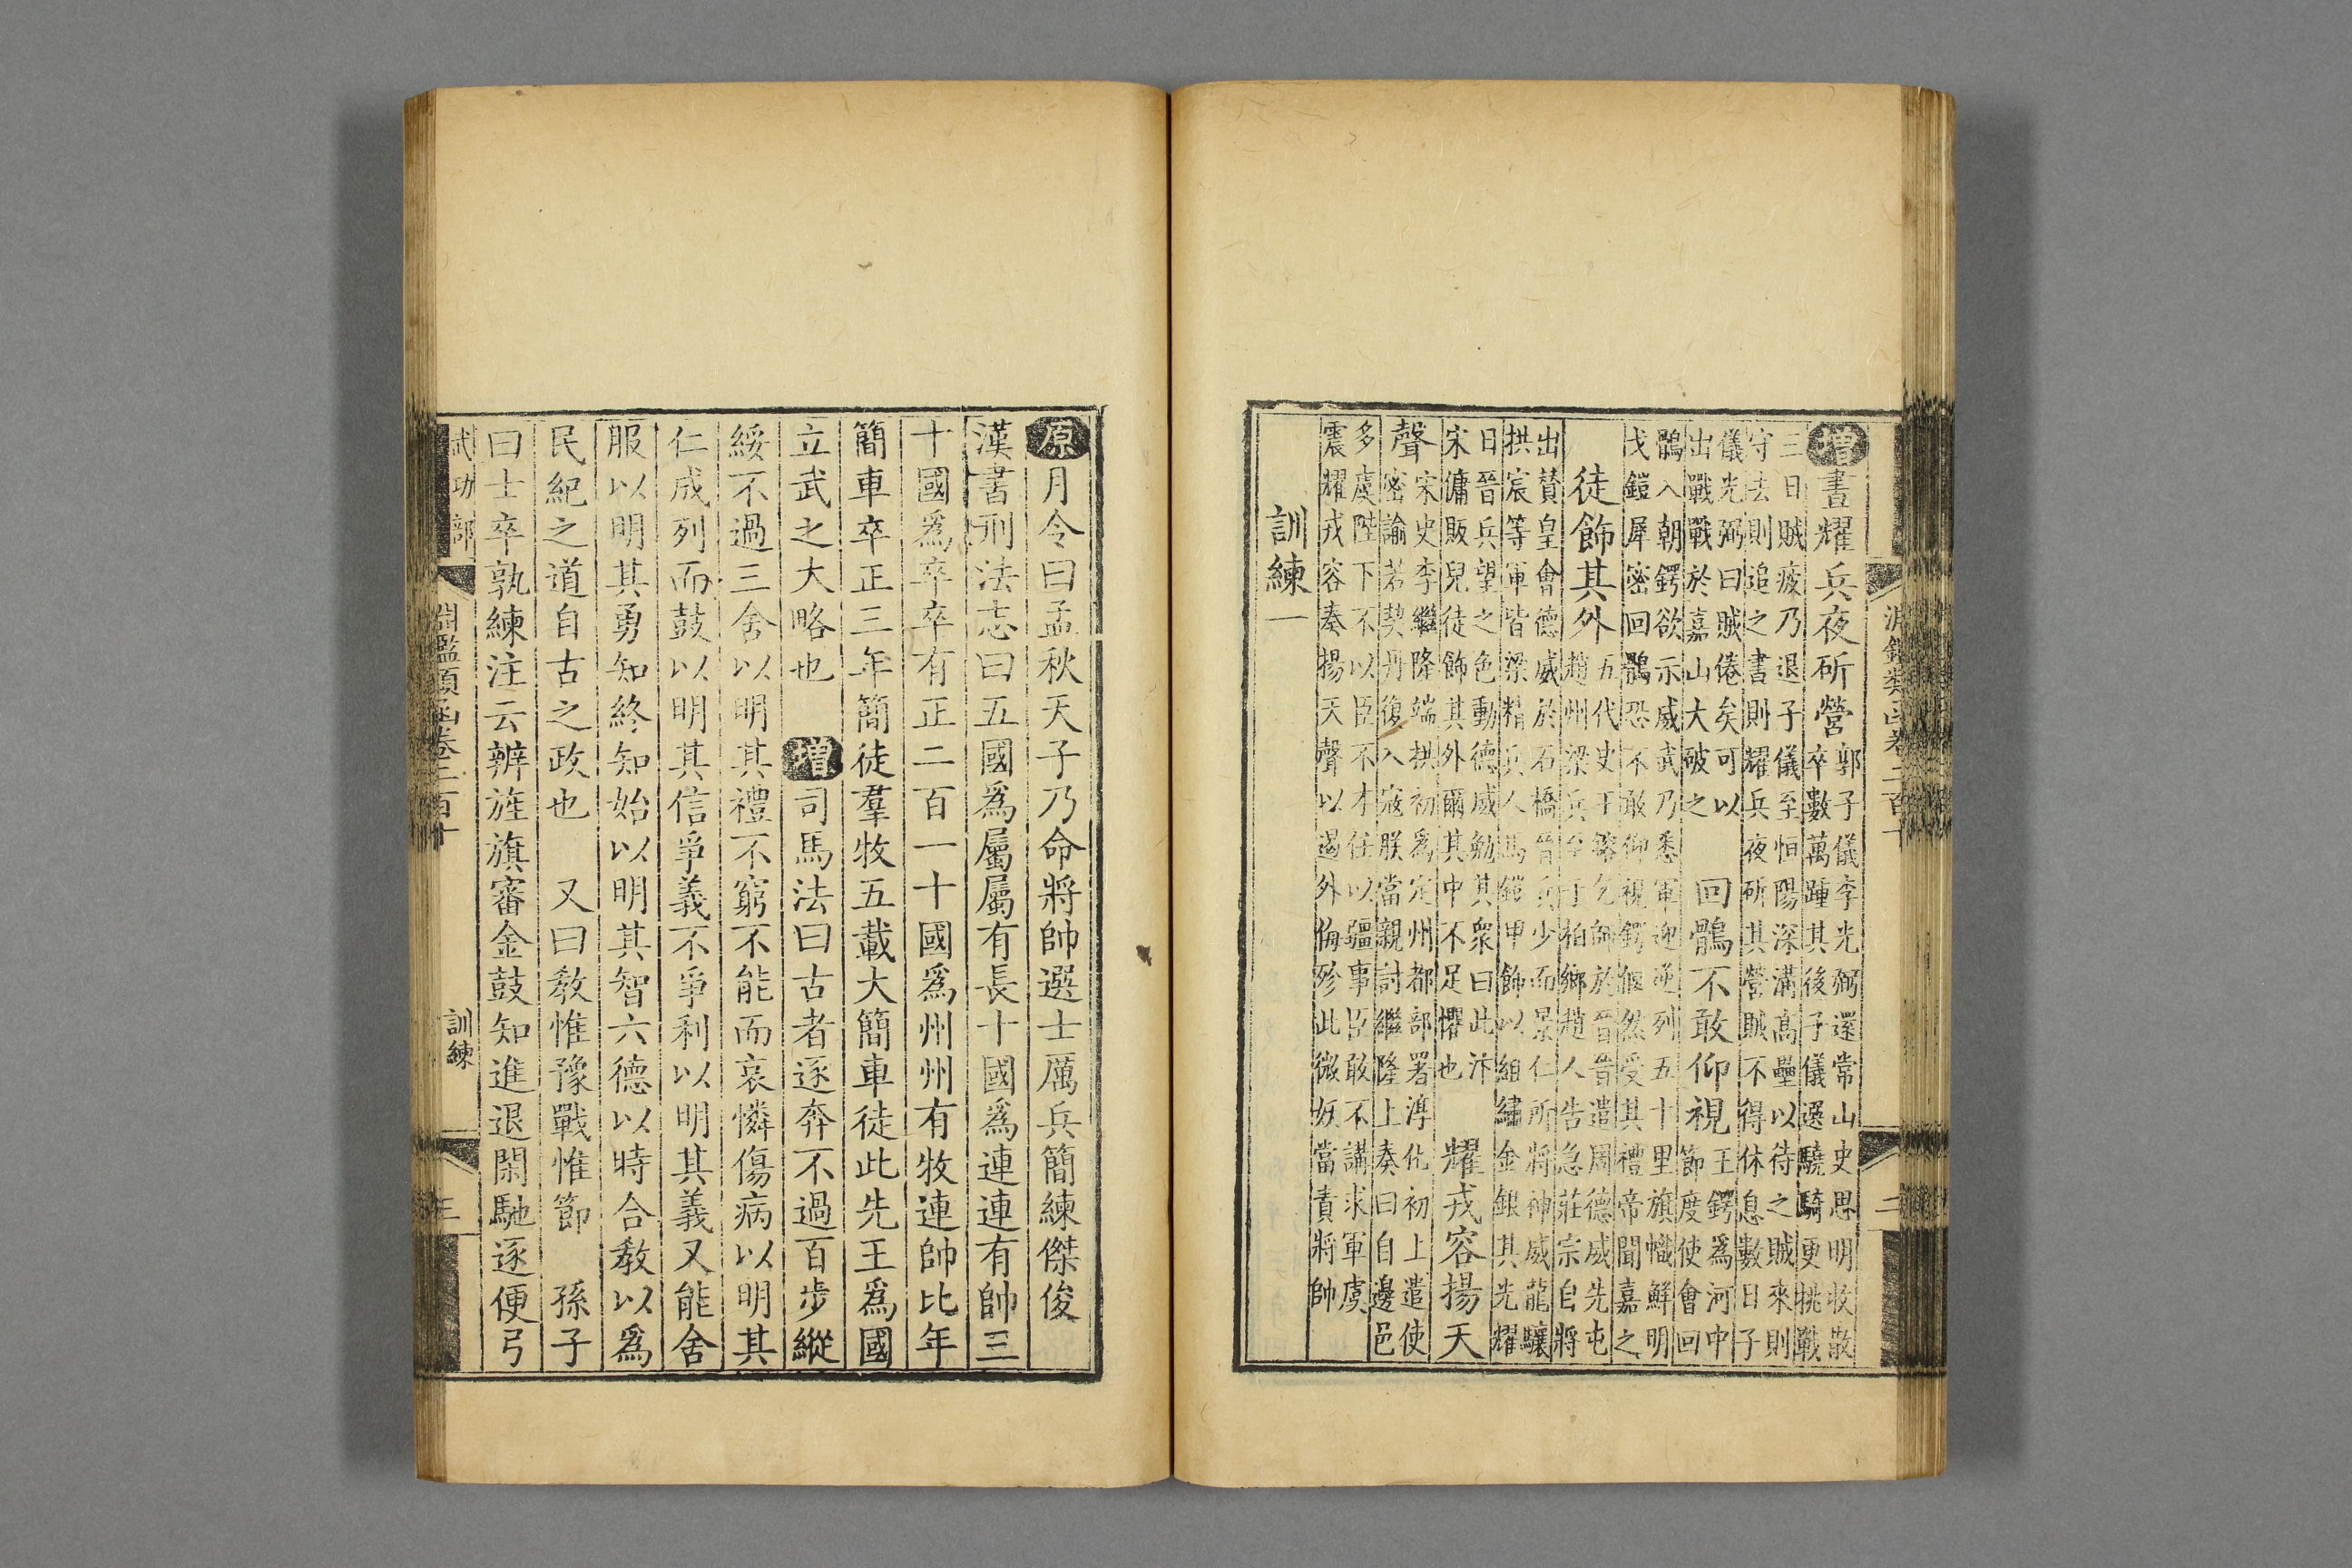 淵鑑類函卷二百十 二
增晝耀兵夜斫營
郭子儀李光弼還常山史思明收散
卒數萬踵其後子儀選驍騎更挑戰
三日賊疲乃退子儀至恒陽深溝高壘以待之賊來則
守法則追之書則耀兵夜斫其營賊不得休息數日子
儀光弼曰賊倦矣可以
出戰戰於嘉山大破之
回鶻不敢仰視
王鍔爲河中
節度使會回
鶻入朝鍔欲示威武乃悉軍迎逆列五十里旗幟鮮明
戈鎧犀密回鶻恐不敢仰視鍔偃然受其禮帝聞嘉之
徒飾其外
五代史王鎔乞師於晉晉遣周德威先屯
趙州梁兵至于柏鄉趙人告急莊宗自將
出贊皇會德威於石橋晉兵少而景仁所將神威龍驤
拱宸等軍皆梁精兵人馬鎧甲飾以組繡金銀其先耀
日晉兵望之色動德威勉其衆曰此汴
宋傭販兒徒飾其外爾其中不足懼也
耀戎容揚天
聲
宋史李繼隆端拱初爲定州都部署淳化初上遣使
密諭若契丹復入寇朕當親討繼隆上奏曰自邊邑
多虞陛下不以臣不才任以疆事臣敢不講求軍虞
震耀戎容奏揚天聲以遏外侮殄此微妖當責將帥
訓練一
原月令曰孟秋天子乃命將帥選士厲兵簡練傑俊
漢書刑法志曰五國爲屬屬有長十國爲連連有帥三
十國爲卒卒有正二百一十國爲州州有牧連帥比年
簡車卒正三年簡徒羣牧五載大簡車徒此先王爲國
立武之大略也 增司馬法曰古者逐奔不過百步縱
綏不過三舍以明其禮不窮不能而哀憐傷病以明其
仁成列而鼓以明其信爭義不爭利以明其義又能舍
服以明其勇知終知始以明其智六德以時合教以爲
民紀之道自古之政也 又曰教惟豫戰惟節 孫子
曰士卒孰練注云辨旌旗審金鼓知進退閑馳逐便弓
武功部 淵鑑類函卷二百十 訓練 三